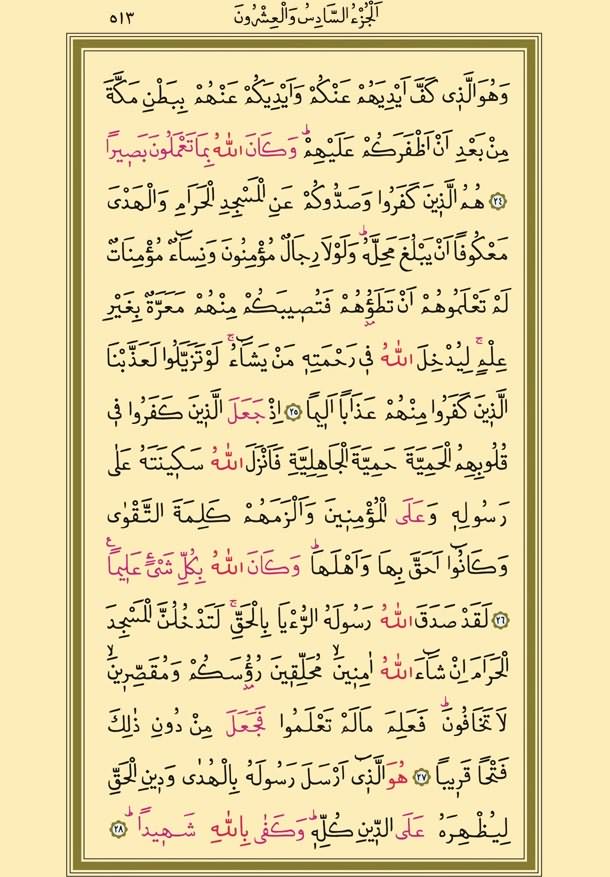 اَلْجُزْءُ السَّادِسُ وَالْعِشْرُونَ
٥١٣
وَهُوَ الَّذ۪ي كَفَّ اَيْدِيَهُمْ عَنْكُمْ وَاَيْدِيَكُمْ عَنْهُمْ بِبَطْنِ مَكَّةَ
مِنْ بَعْدِ اَنْ اَظْفَرَكُمْ عَلَيْهِمْۜ وَكَانَ اللّٰهُ بِمَا تَعْمَلُونَ بَص۪يرًا
﴿٢٤﴾ هُمُ الَّذ۪ينَ كَفَرُوا وَصَدُّوكُمْ عَنِ الْمَسْجِدِ الْحَرَامِ وَالْهَدْيَ
مَعْكُوفًا اَنْ يَبْلُغَ مَحِلَّهُۜ وَلَوْلَا رِجَالٌ مُؤْمِنُونَ وَنِسَٓاءٌ مُؤْمِنَاتٌ
لَمْ تَعْلَمُوهُمْ اَنْ تَطَؤُ۫هُمْ فَتُص۪يبَكُمْ مِنْهُمْ مَعَرَّةٌ بِغَيْرِ
عِلْمٍۚ لِيُدْخِلَ اللّٰهُ ف۪ي رَحْمَتِه۪ مَنْ يَشَٓاءُۚ لَوْ تَزَيَّلُوا لَعَذَّبْنَا
الَّذ۪ينَ كَفَرُوا مِنْهُمْ عَذَابًا اَل۪يمًا ﴿٢٥﴾ اِذْ جَعَلَ الَّذ۪ينَ كَفَرُوا ف۪ي
قُلُوبِهِمُ الْحَمِيَّةَ حَمِيَّةَ الْجَاهِلِيَّةِ فَاَنْزَلَ اللّٰهُ سَك۪ينَتَهُ عَلٰى
رَسُولِه۪ وَعَلَى الْمُؤْمِن۪ينَ وَاَلْزَمَهُمْ كَلِمَةَ التَّقْوٰى
وَكَانُٓوا اَحَقَّ بِهَا وَاَهْلَهَاۜ وَكَانَ اللّٰهُ بِكُلِّ شَيْءٍ عَل۪يمًا۟
﴿٢٦﴾ لَقَدْ صَدَقَ اللّٰهُ رَسُولَهُ الرُّءْيَا بِالْحَقِّۚ لَتَدْخُلُنَّ الْمَسْجِدَ
الْحَرَامَ اِنْ شَٓاءَ اللّٰهُ اٰمِن۪ينَۙ مُحَلِّق۪ينَ رُؤُ۫سَكُمْ وَمُقَصِّر۪ينَۙ
لَا تَخَافُونَۜ فَعَلِمَ مَا لَمْ تَعْلَمُوا فَجَعَلَ مِنْ دُونِ ذٰلِكَ
فَتْحًا قَر۪يبًا ﴿٢٧﴾ هُوَ الَّذ۪ٓي اَرْسَلَ رَسُولَهُ بِالْهُدٰى وَد۪ينِ الْحَقِّ
لِيُظْهِرَهُ عَلَى الدّ۪ينِ كُلِّه۪ۜ وَكَفٰى بِاللّٰهِ شَه۪يدًاۜ ﴿٢٨﴾